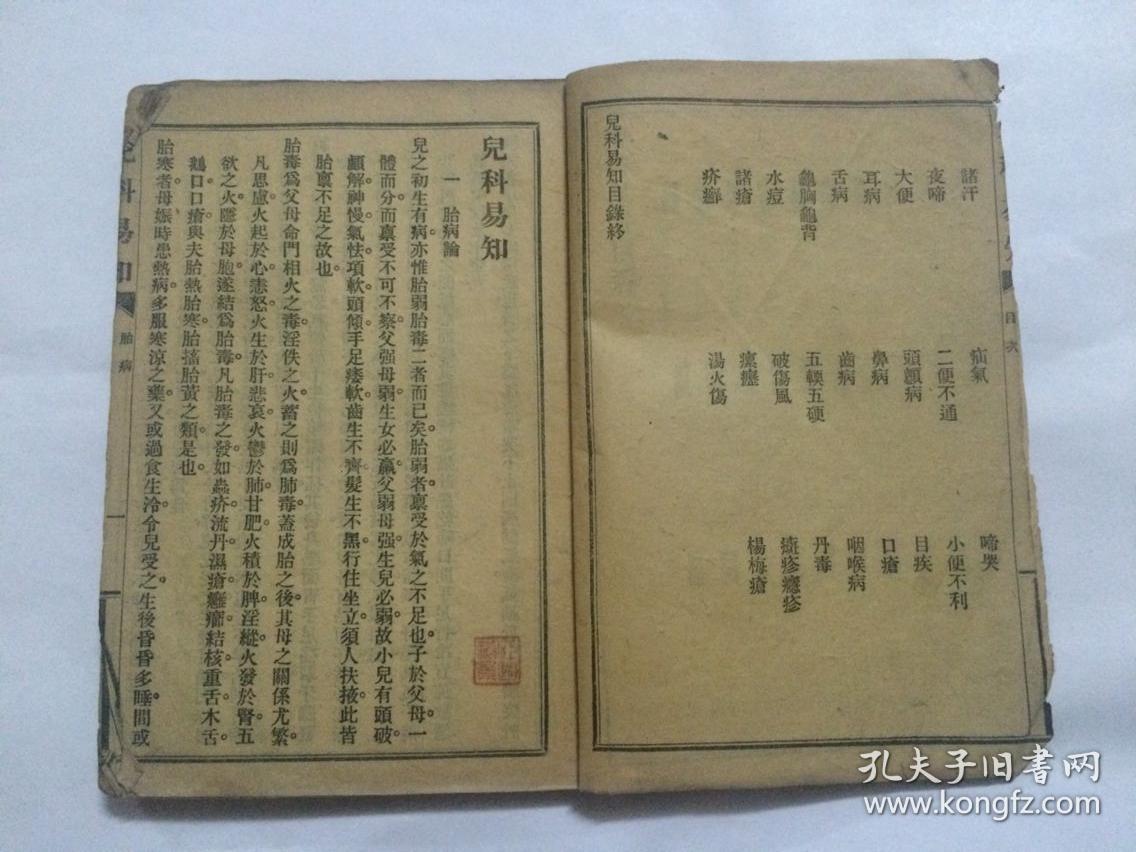 諸汗
疝氣
啼哭
夜啼
二便不通
小便不利
大便
頭顱病
目疾
耳病
鼻病
口瘡
舌病
齒病
咽喉病
龜胸龜背
五輭五硬
丹毒
水痘
破傷風
瘄疹癮疹
諸瘡
瘰癧
楊梅瘡
疥癬
湯火傷
兒科易知目錄終
目次
兒科易知
一 胎病論
兒之初生有病。亦惟胎弱胎毒二者而已矣。胎弱者。禀受於氣之不足也。子於父母。一
體而分。而禀受不可不察。父强母弱。生女必羸。父弱母强。生兒必弱。故小兒有頭破
顱解。神慢氣怯。項軟頭傾。手足痿軟。齒生不齊。髮生不黑。行住坐立。須人扶掖。此皆
胎禀不足之故也。
胎毒爲父母命門相火之毒。淫佚之火蓄之。則爲肺毒。蓋成胎之後。其母之關係尤繁。
凡思慮火起於心。恚怒火生於肝。悲哀火鬱於肺。甘肥火積於脾。淫縱火發於腎。五
欲之火。隱於母胞。遂結爲胎毒。凡胎毒之發。如蟲疥流丹。濕瘡癰癤。結核重舌木舌
鵝口口瘡。與夫胎熱胎寒胎搐胎黃之類是也。
胎寒者。母娠時患熱病。多服寒涼之藥。又或過食生冷。令兒受之。生後昏昏多睡。間或
兒科易知
胎病
一
孔夫子旧书网
www.kongfz.com